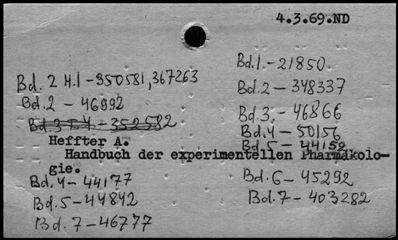 4.3.69.ND
Bd.1-21850.
Bd. 2 H.1-950581, 367263
Bd.2-348337
Bd.2-46992
Bd.3.-46866
Bd.3 T.1.-352582
Bd.4-50156
Bd.5-44159
Heffter A.
Handbuch der experimentellen Pharmakolo-
gie.
Bd.4-44177
Bd.6-45292
Bd.5-44842
Bd.7-403282
Bd.7-46777